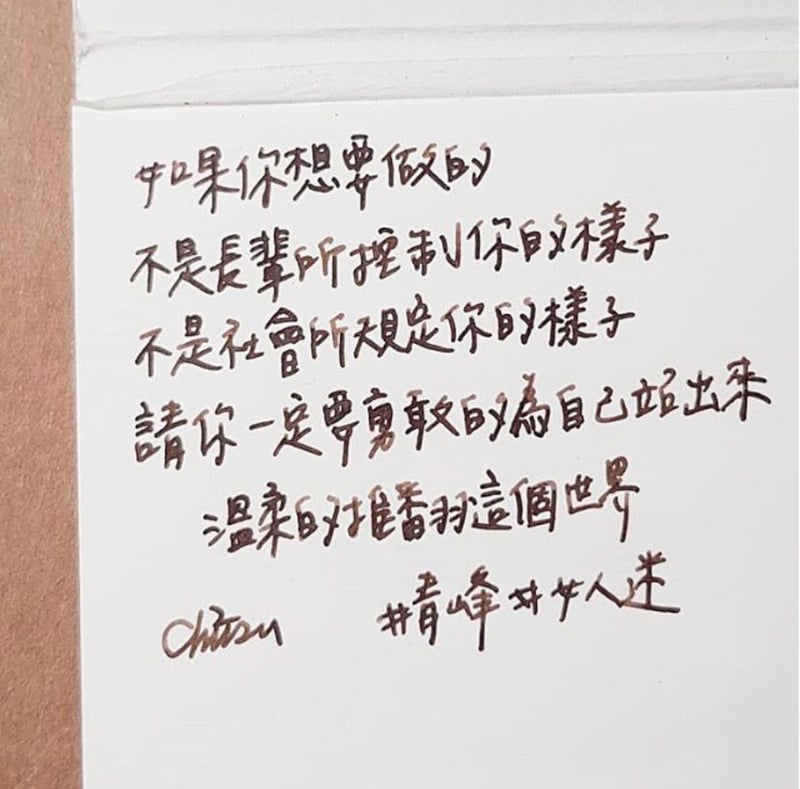 如果你想要做的
不是長輩所控制你的樣子
不是社會所規定你的樣子
請你一定要勇敢的為自己站出來
溫柔的推翻這個世界
#青峰 #女人迷